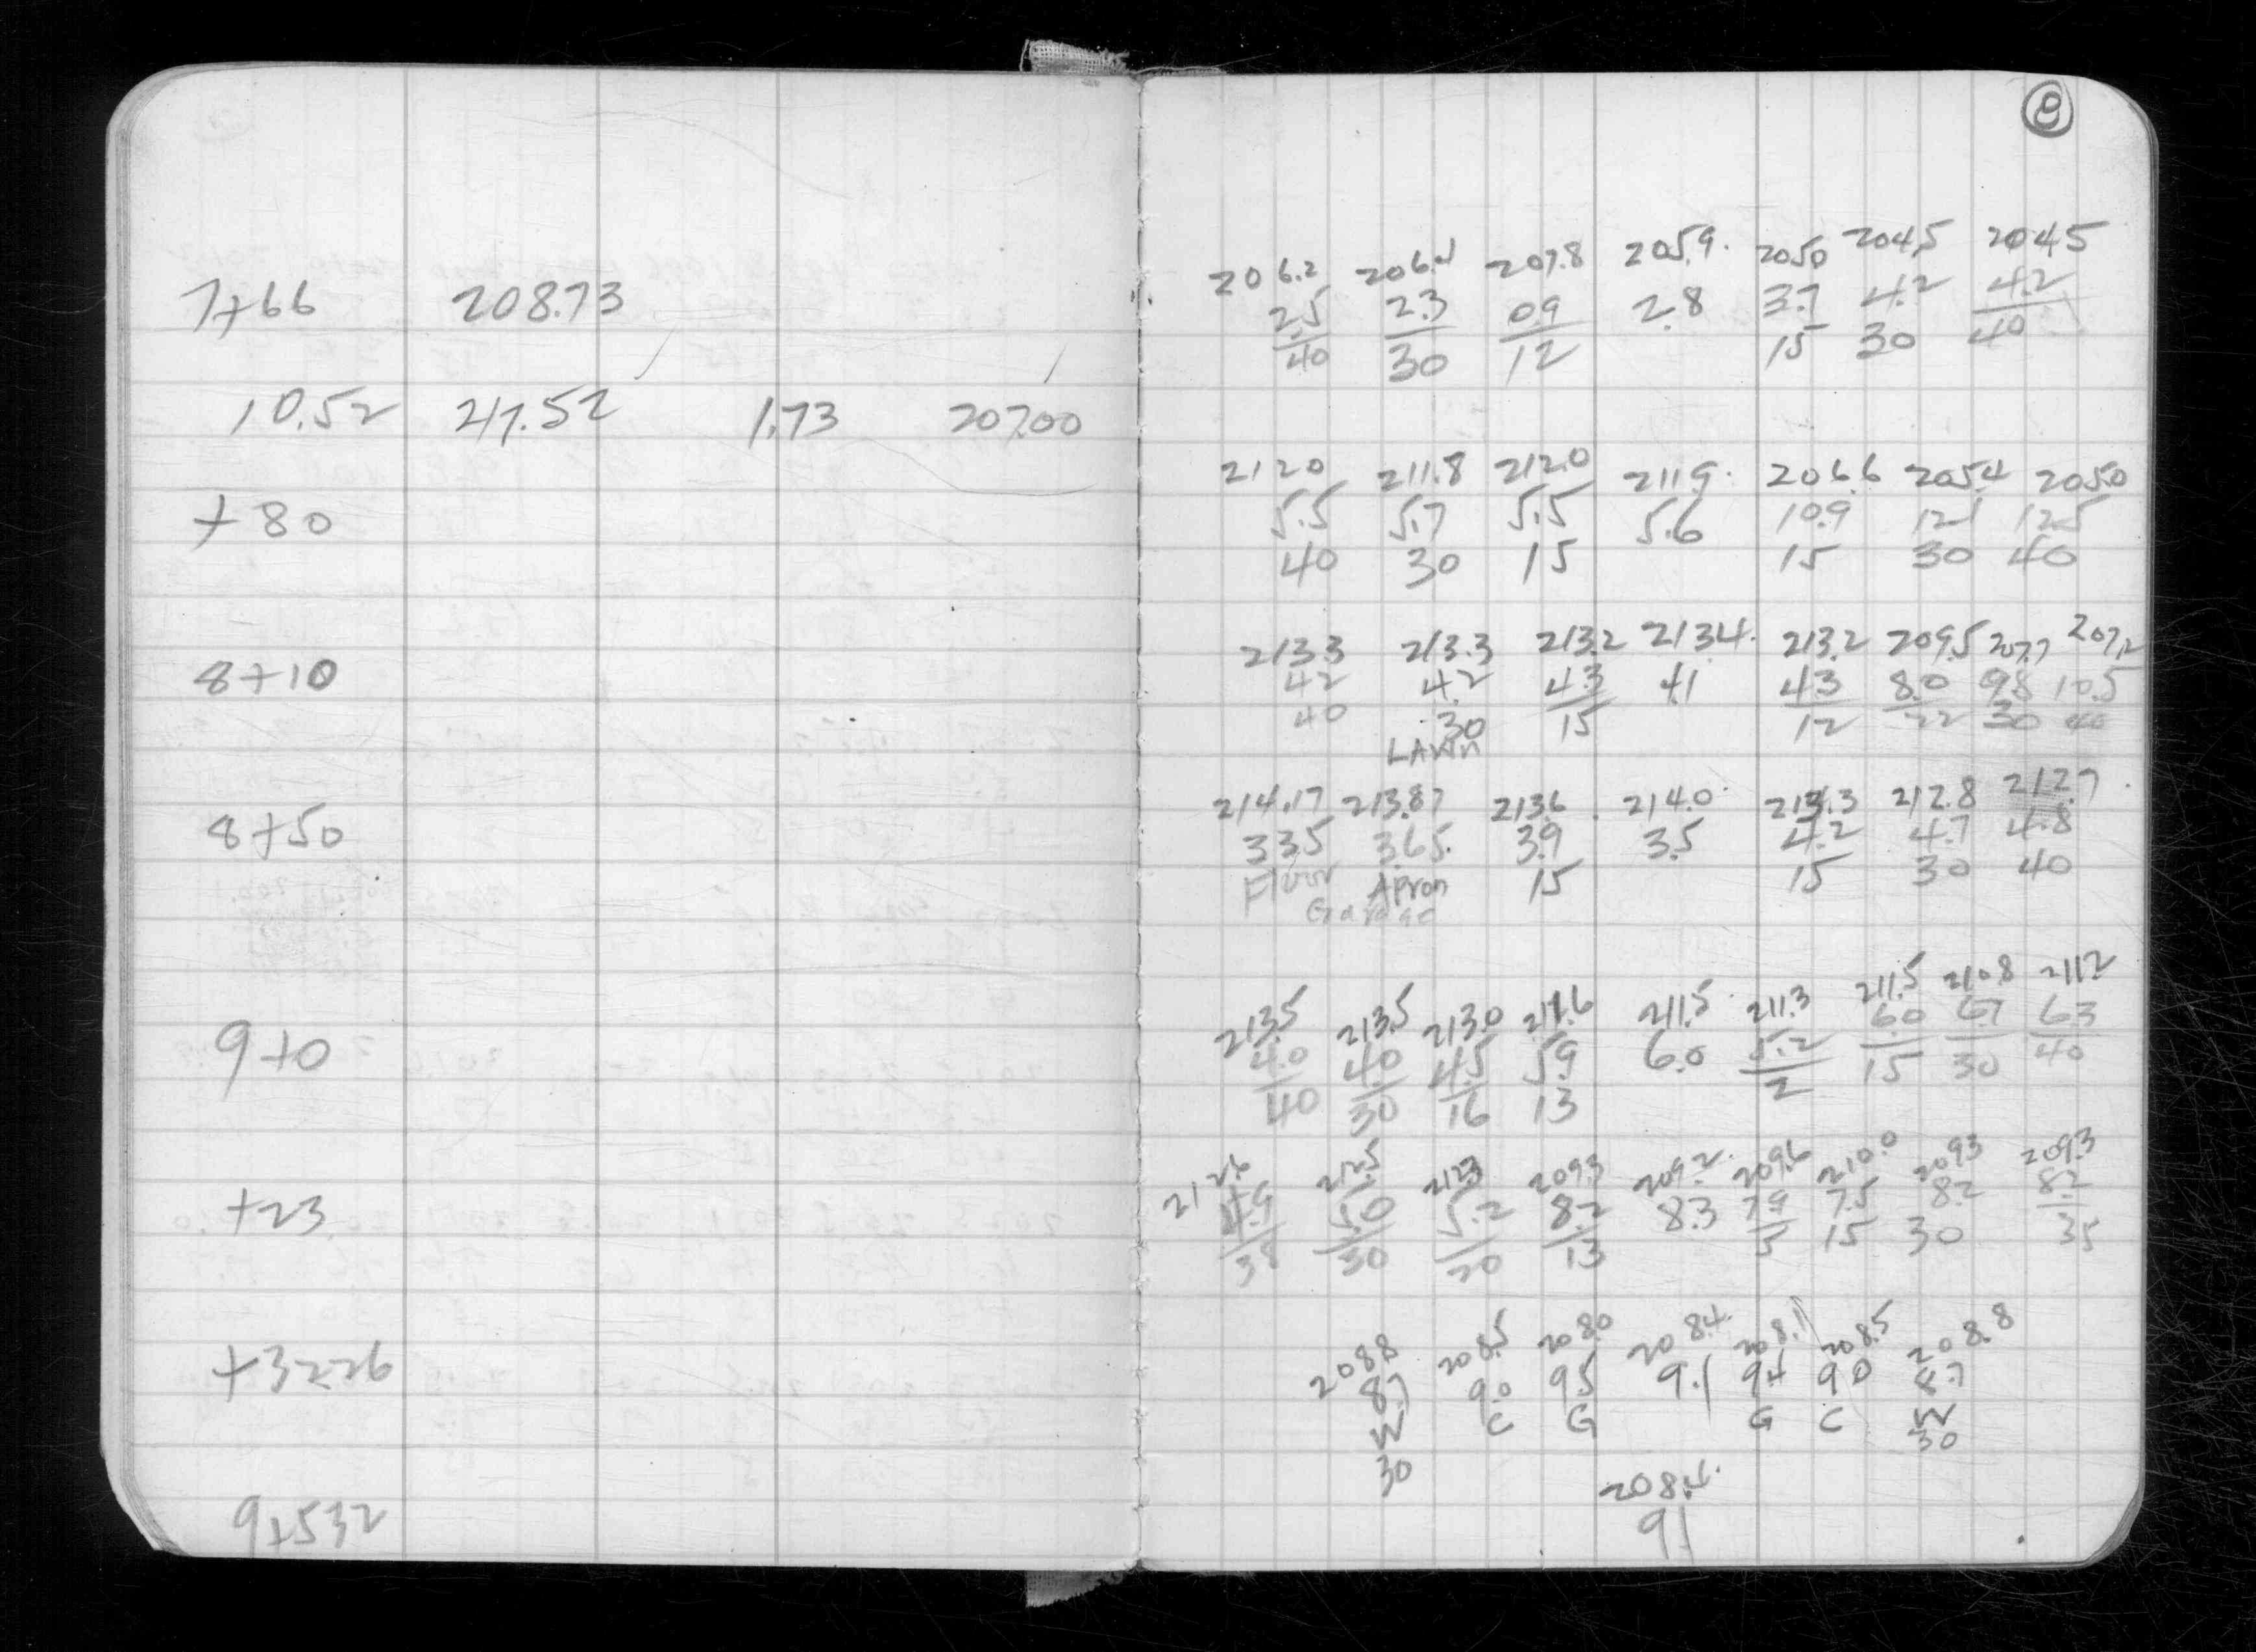 8
206.2 206.4 207.8 205.9. 205.0 204.5 204.5
7+66 208.73 2.5 2.3 0.9 2.8 3.7 4.2 4.2
40 30 12 15 30 40
10.52 217.52 1.73 207.00
212.0 211.8 212.0 211.9. 206.6 205.4 205.0
+80 5.5 5.7 5.5 5.6 10.9 12.1 12.5
40 30 15 15 30 40
213.3 213.3 213.2 213.4. 213.2 209.5 207.7 207.2
8+10 4.2 4.2 4.3 4.1 4.3 8.0 9.8 10.5
40 30 15 12 22 30 40
LAWN
214.17 213.87 213.6 214.0. 213.3 212.8 212.7.
8+50 3.35 3.65 3.9 3.5 4.2 4.7 4.8
Floor Apron 15 15 30 40
Garage
213.5 213.5 213.0 211.6 211.5. 211.3 211.5 210.8 211.2
9+0 4.0 4.0 4.5 5.9 6.0 5.2 6.0 6.7 6.3
40 30 16 13 2 15 30 40
212.6 212.5 212.3 209.3 209.2. 209.6 210.0 209.3 209.3
+23 4.9 5.0 5.2 8.2 8.3 7.9 7.5 8.2 8.2
38 30 20 13 5 15 30 35
208.8 208.5 208.0 208.4. 208.1 208.5 208.8
+32.26 8.7 9.0 9.5 9.1 9.4 9.0 8.7
W C G G C W
30 30
208.4.
9+532 9.1